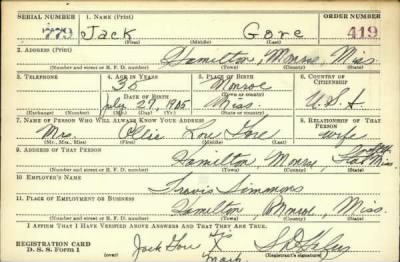 SERIAL NUMBER 1. NAME (Print) ORDER NUMBER
779 Jack Gore 419
(First) (Middle) (Last)
2. ADDRESS (Print)
Hamilton, Monroe, Miss.
(Number and street or R. F. D. number) (Town) (County) (State)
3. TELEPHONE 4. AGE IN YEARS 5. PLACE OF BIRTH 6. COUNTRY OF CITIZENSHIP
35 Monroe
DATE OF BIRTH (Town or county)
July 27, 1905 Miss. U.S.A
(Exchange) (Number) (Mo.) (Day) (Yr.) (State or country)
7. NAME OF PERSON WHO WILL ALWAYS KNOW YOUR ADDRESS 8. RELATIONSHIP OF THAT PERSON
Mrs. Ollie Gore wife
(Mr., Mrs., Miss) (First) (Middle) (Last)
9. ADDRESS OF THAT PERSON
Hamilton, Monroe, Miss
(Number and street or R. F. D. number) (Town) (County) (State)
10. EMPLOYER'S NAME
Travis Simmons
11. PLACE OF EMPLOYMENT OR BUSINESS
Hamilton Monroe, Miss
(Number and street or R. F. D. number) (Town) (County) (State)
I AFFIRM THAT I HAVE VERIFIED ABOVE ANSWERS AND THAT THEY ARE TRUE.
REGISTRATION CARD
D. S. S. Form 1 (over) Jack Gore his X mark
(Registrant's signature)